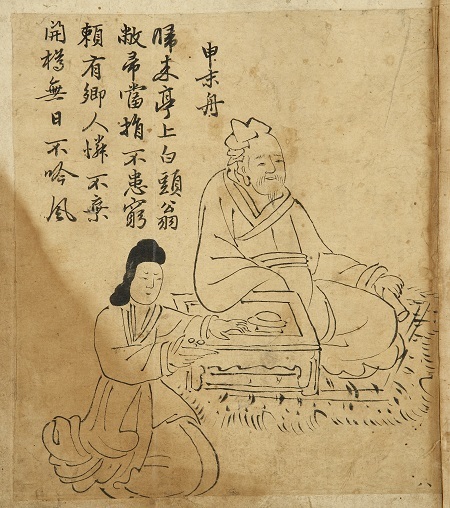 申末舟
歸来亭上白頭翁
敝帚當捐不患窮
賴有鄉人憐不棄
開樽無日不吟風